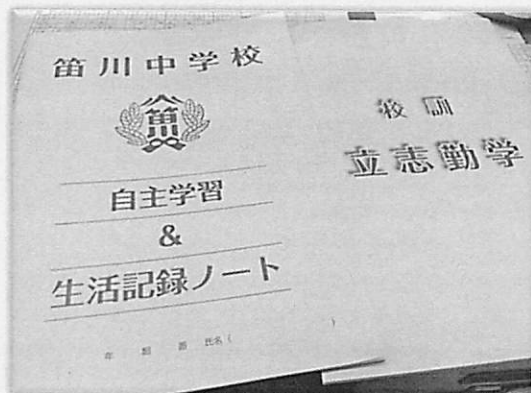 笛川中学校
笛川
自主学習
&
生活記録ノート
年 組 番 氏名( )
校訓
立志勤学